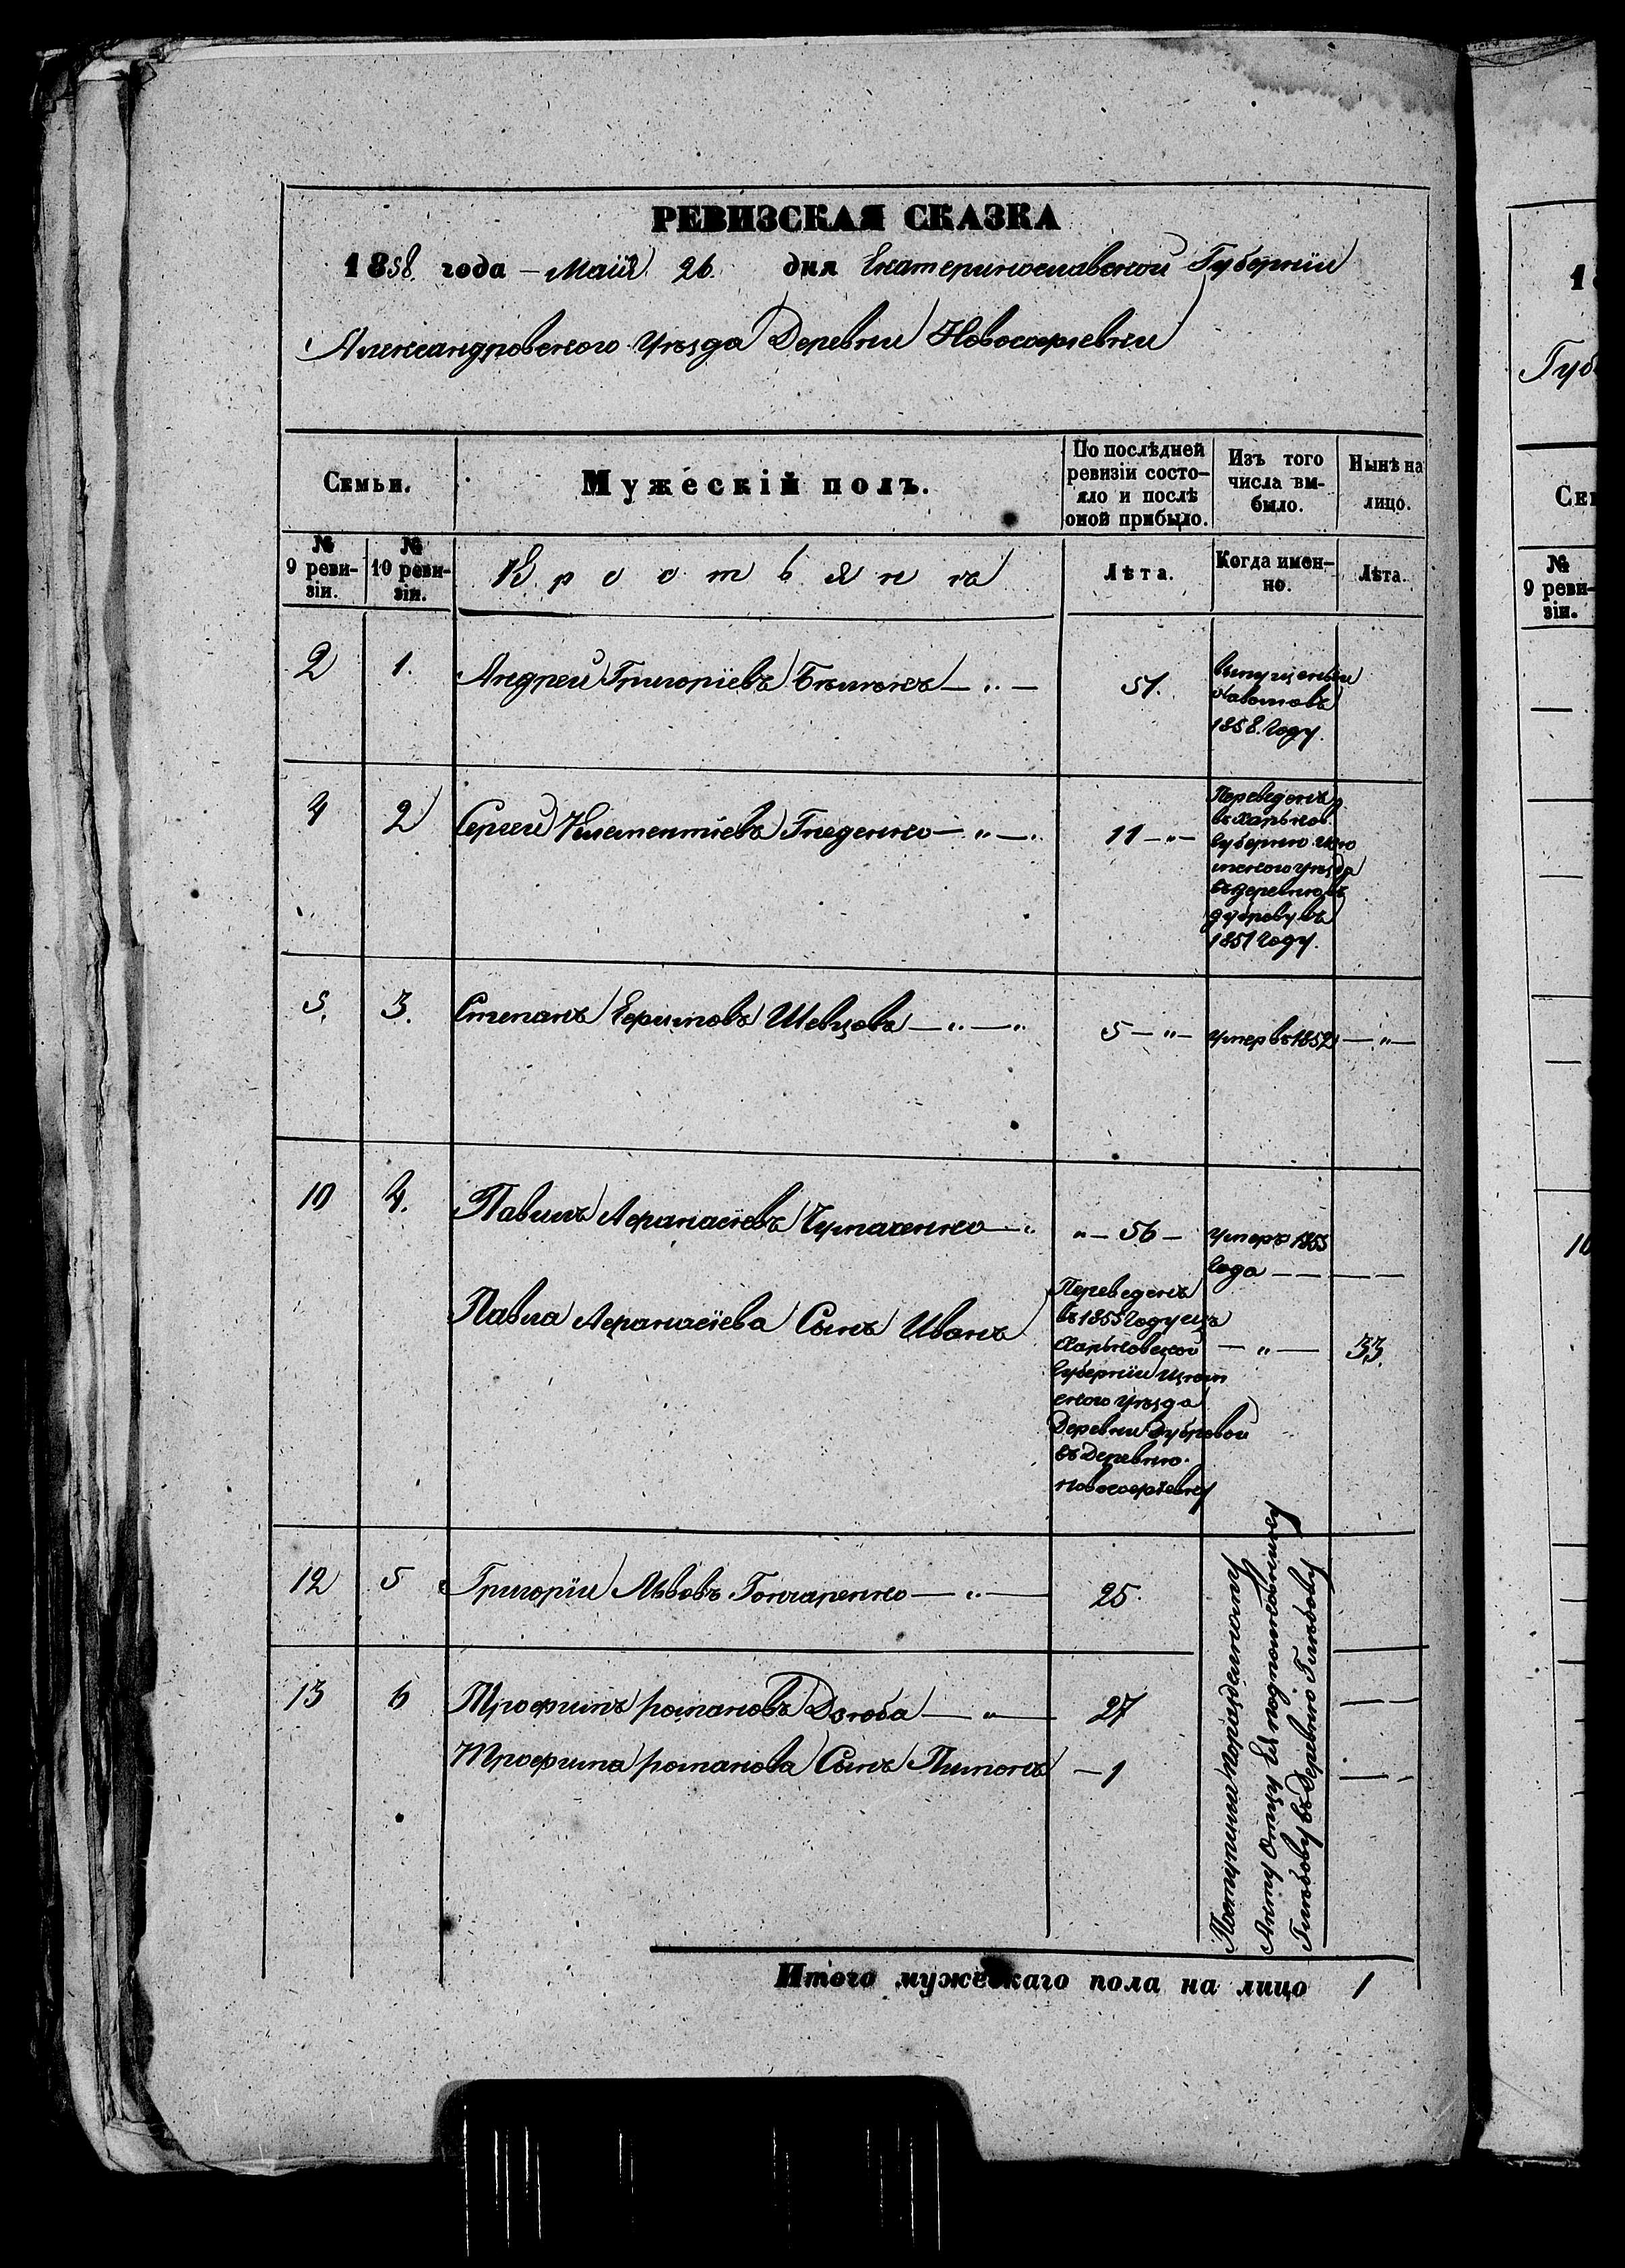 РЕВИЗСКАЯ СКАЗКА
1858 года — Маия 26 дня Екатеринославской Губернiи
Александровского Уезда Деревни Новософiевки
Семьи.
Мужескiй полъ.
По послѣдней ревизiи состо-
яло и послѣ
оной прибыло.
Изъ того
числа вы-
было.
Нынѣ на
лицо.
№
9 реви-
зiи.
№
10 реви-
зiи.
Крестьянъ
Лѣта.
Когда имен-
но.
Лѣта.
2 1. Андрей Григорiевъ — „ — 51.
1858. году.
4 2 Сергей Климентiевъ Гнеденко — „ — 11 — „ —
Переведенъ
въ Харьков.
губернiю
ского уезда
въ деревню
дуброву въ
1851 году.
5. 3. Степанъ Ефимовъ Шевцовъ — „ — „ 5 — „ — умер въ 1852 — „ —
10 4. Павилъ Афанасiевъ Чумаченко — „ „ — 56 — умеръ 1855
года — — — —
Павла Афанасiева Сынъ Иванъ
Переведенъ
въ 1855 году изъ
Харьковской — „ — 33.
губернiи Изюм
ского уезда
Деревни Дубровой
въ Деревню
новософiевку
12 5 Григорiи Львовъ Гончаренко — „ — 25.
13 6 Трофимъ романовъ Дзюба — „ — 27 — —
Трофима романова Сынъ Пимонъ — 1 — —
Акту Отцу Ея подполковнику
Глѣбову въ Деревню Глѣбову
Итого мужескаго пола на лицо 1
1
Губ
Се
№
9 реви-
зiи.
10